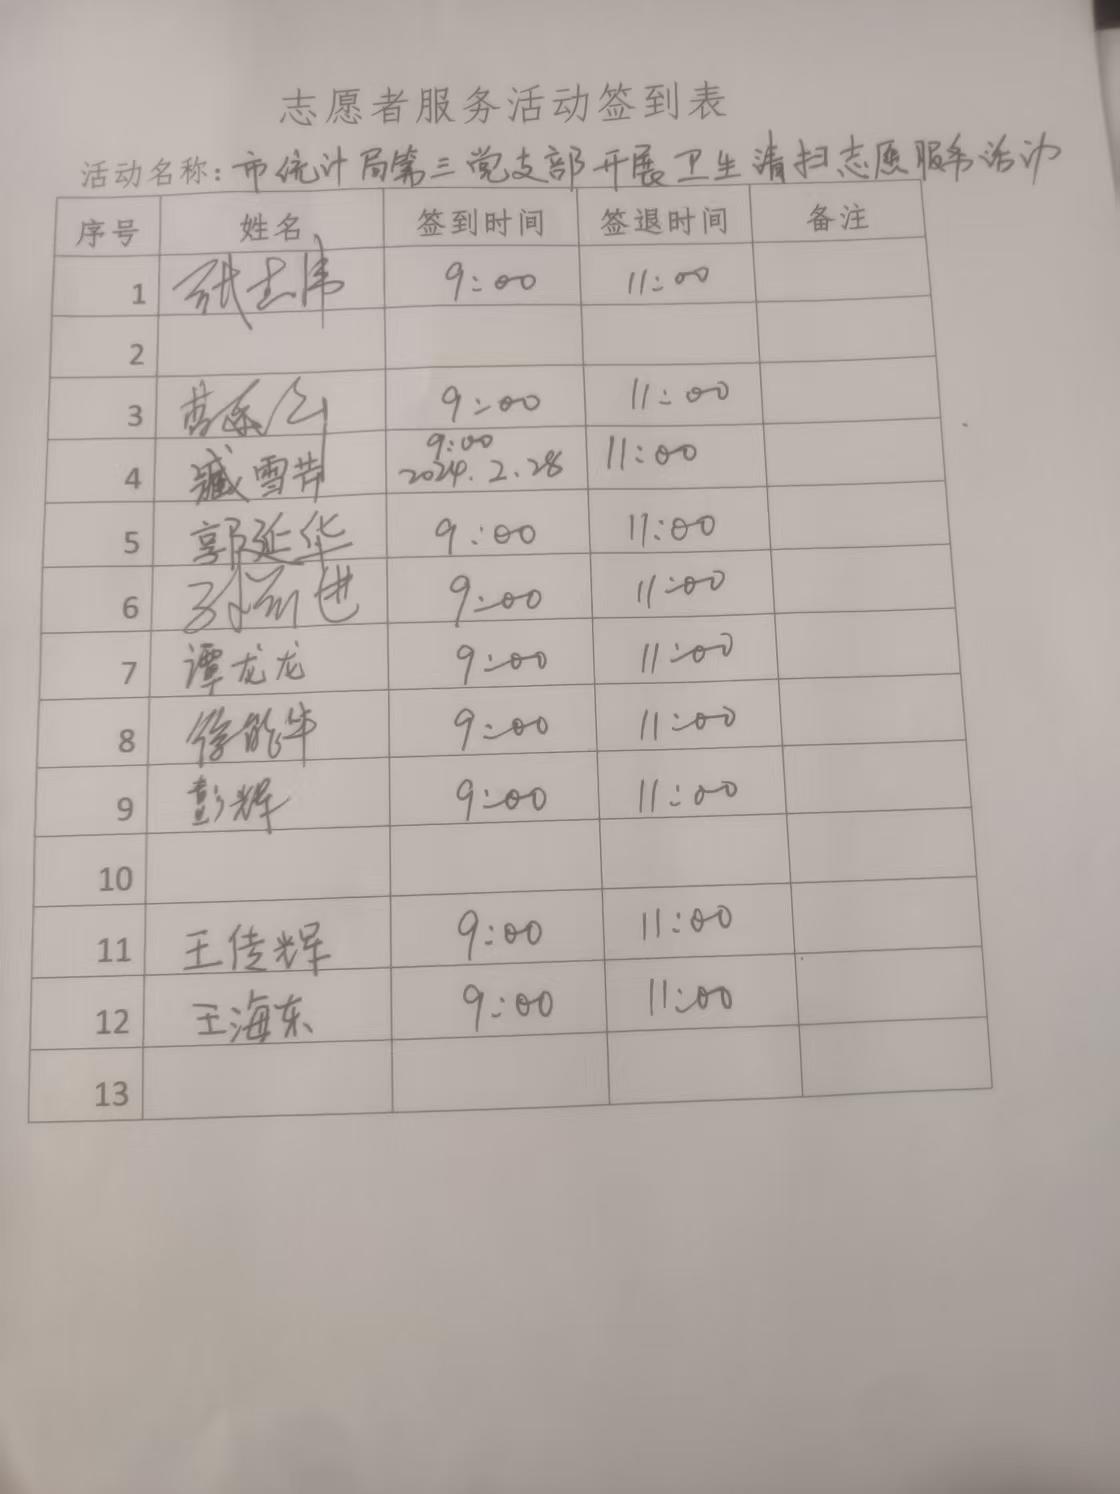 志愿者服务活动签到表
活动名称：市统计局第三党支部开展卫生清扫志愿服务活动
序号 姓名 签到时间 签退时间 备注
1 张志伟 9:00 11:00
2
3 9:00 11:00
4 臧雪芹 9:00 2024.2.28 11:00
5 郭延华 9:00 11:00
6 9:00 11:00
7 谭龙龙 9:00 11:00
8 徐能华 9:00 11:00
9 彭辉 9:00 11:00
10
11 王传辉 9:00 11:00
12 王海东 9:00 11:00
13